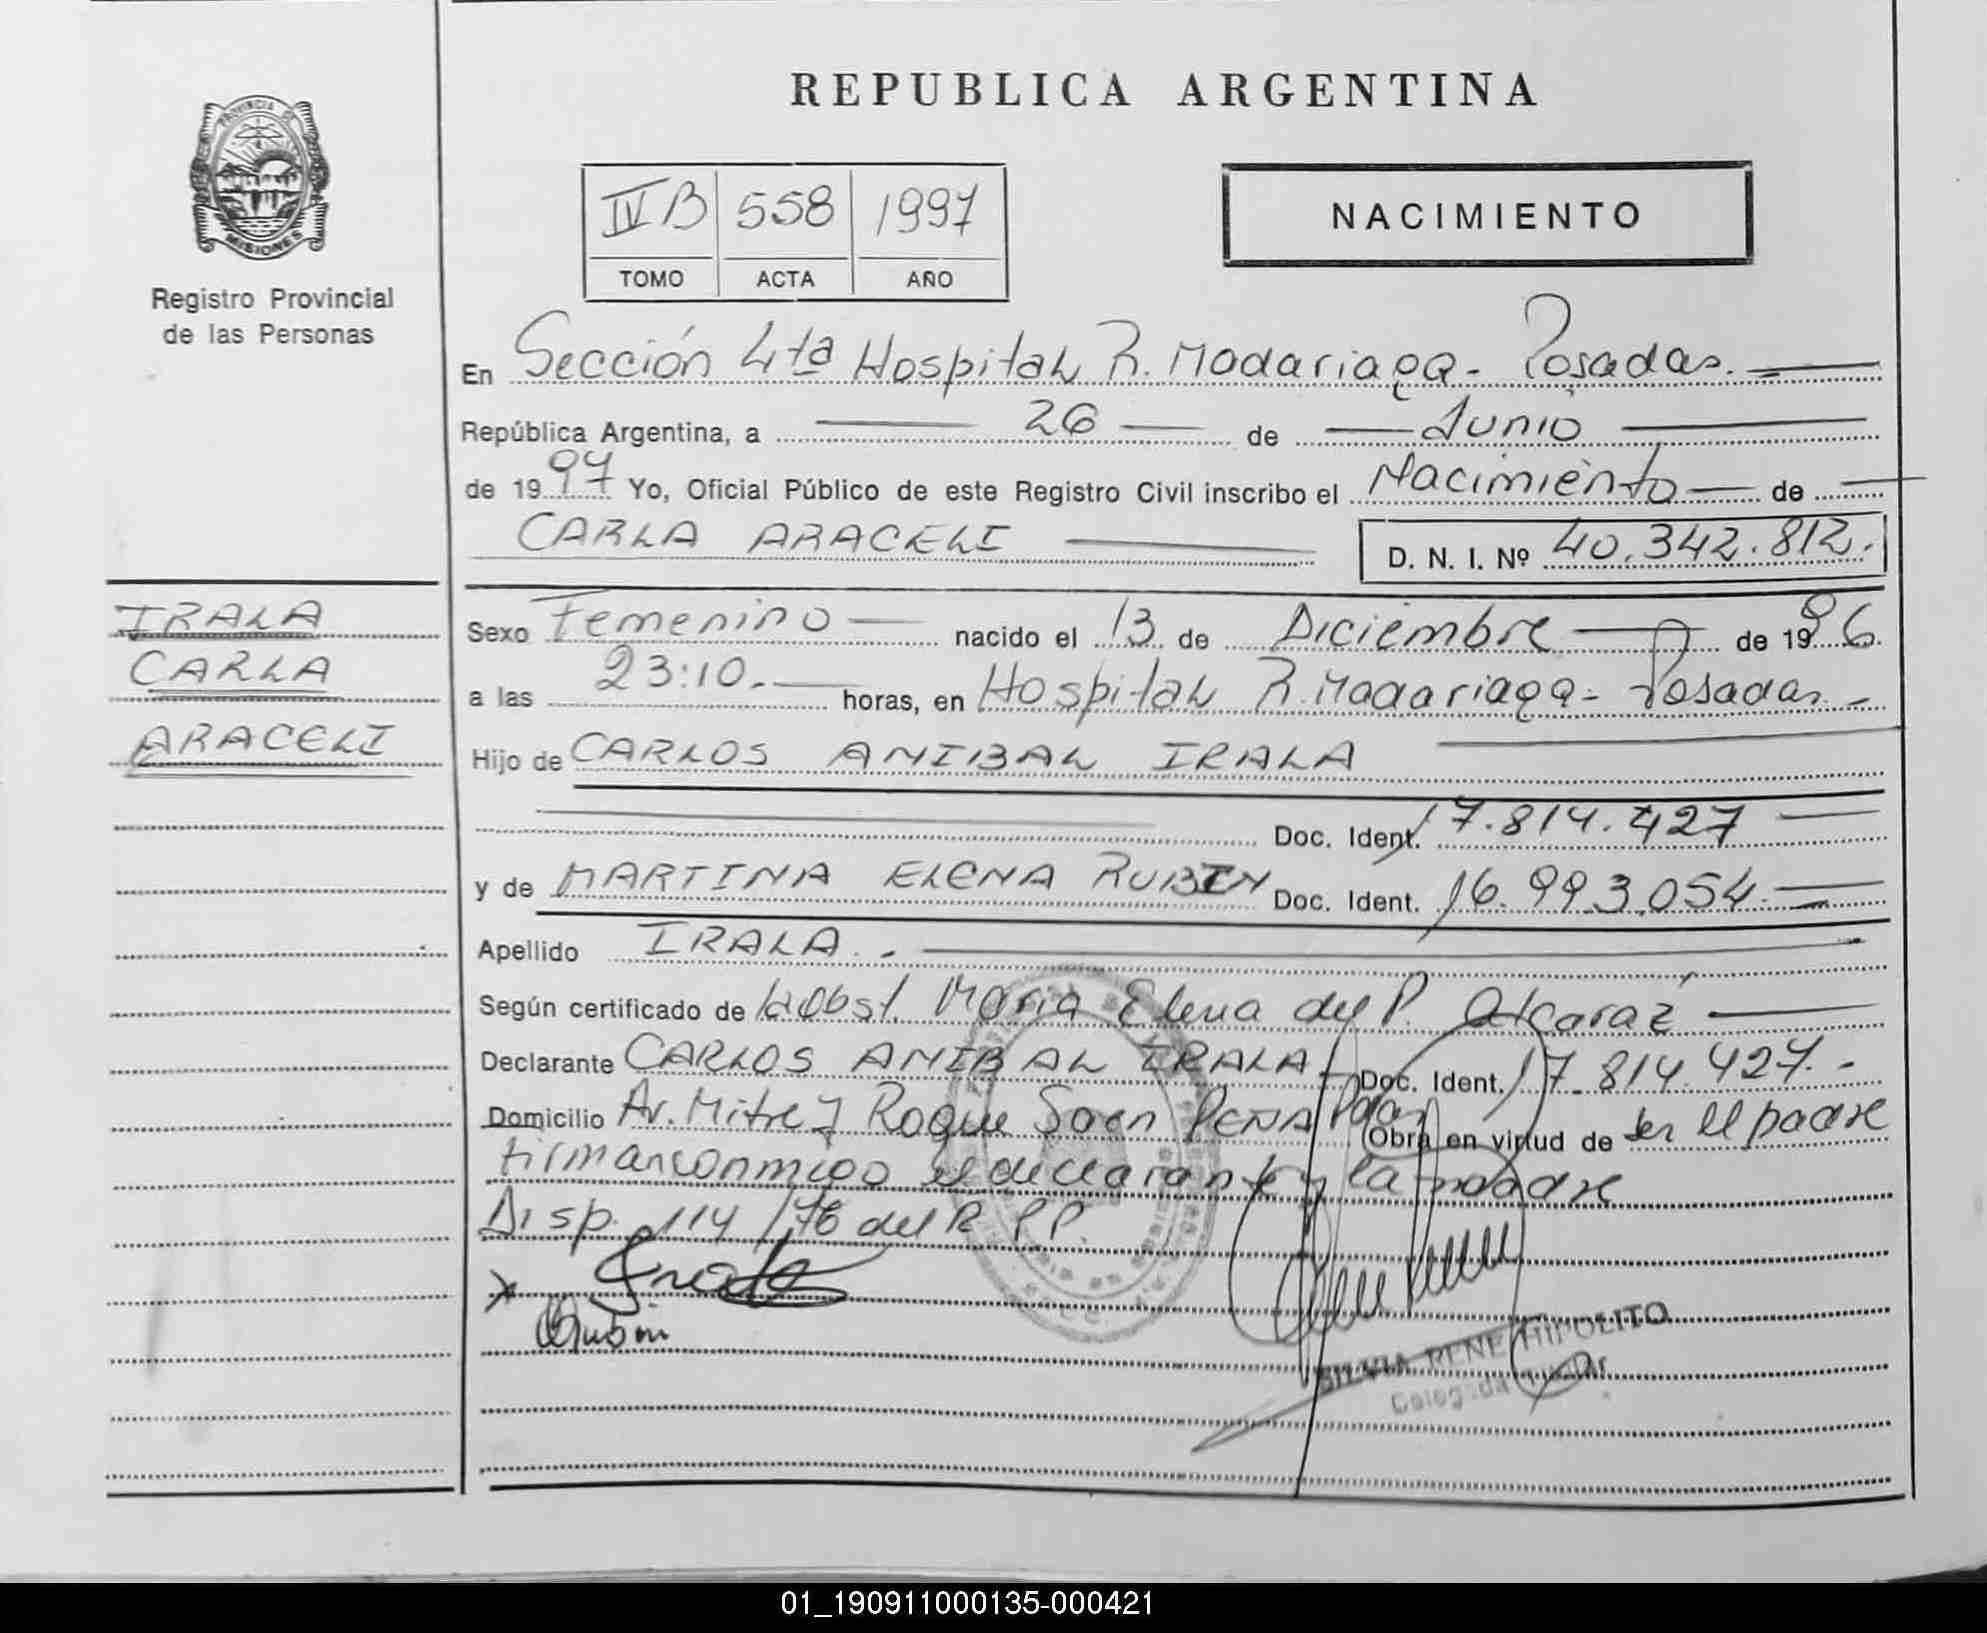 REPUBLICA ARGENTINA
PROVINCIA DE
MISIONES
Registro Provincial
de las Personas
IV B 558 1997
TOMO ACTA AÑO
NACIMIENTO
En Sección 4ta Hospital R. Madariaga - Posadas.
República Argentina, a 26 de Junio
de 1997 Yo, Oficial Público de este Registro Civil inscribo el Nacimiento de
CARLA ARACELI D. N. I. Nº 40.342.812.
IRALA
CARLA
ARACELI
Sexo Femenino nacido el 13 de Diciembre de 1996.
a las 23:10. horas, en Hospital R. Madariaga - Posadas. -
Hijo de CARLOS ANIBAL IRALA
Doc. Ident. 17.814.427
y de MARTINA ELENA RUBIN Doc. Ident. 16.993.054.
Apellido IRALA. -
Según certificado de la obst. Maria Elena del P. Alcaraz
Declarante CARLOS ANIBAL IRALA - Doc. Ident. 17.814.427. -
Domicilio Av. Mitre y Roque Saen PEÑA Pdas Obra en virtud de ser el padre
firman conmigo el declarante y la madre
Disp. 114/76 del R.P.P.
RENE HIPOLITO
01_190911000135-000421